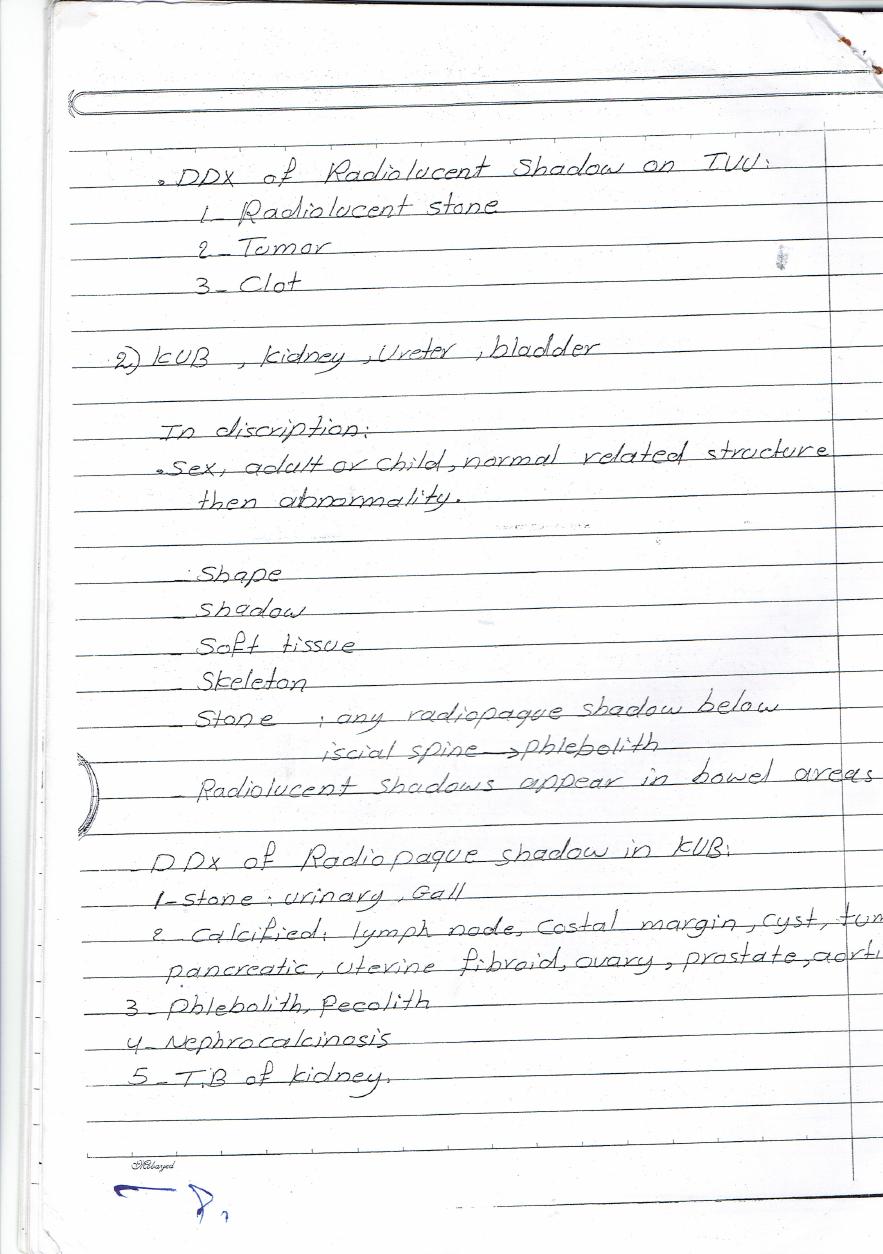 . DDX of Radiolucent Shadow on IVU:
1- Radiolucent stone
2- Tumor
3- Clot
2) KUB , kidney , Ureter , bladder
In discription:
. Sex, adult or child, normal related structure
then abnormality.
- Shape
- Shadow
- Soft tissue
- Skeleton
- Stone : any radiopaque shadow below
iscial spine → phlebolith
- Radiolucent shadows appear in bowel areas
DDx of Radiopaque shadow in KUB:
1- Stone : urinary , Gall
2- Calcified: lymph node, costal margin, cyst,
pancreatic, uterine fibroid, ovary, prostate,
3- Phlebolith, Fecolith
4- Nephrocalcinosis
5- T.B of kidney.